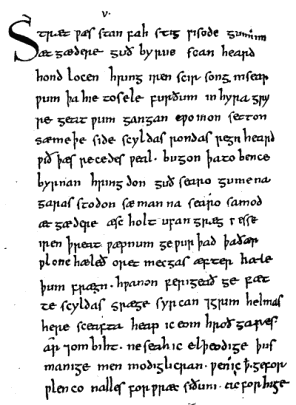 .v.
Stræt ƿæs stan fah stig ƿisode gumum
ætgædere guð byrne scan heard
hond locen hring iren scir song in sear
ƿum þa hie to sele furðum in hyra gry
re geat ƿum gangan cƿomon setton
sæmeþe side scyldas rondas regn heard
ƿið þæs recedes ƿeal. bugon þa to bence
byrnan hring don guð searo gumena
garas stodon sæ man na searo samod
ætgædere æsc holt ufan græg
iren þreat ƿæpnum geƿurþad þa ðær
ƿlonc hæleð oret mecgas æfter hæle
þum frægn. hƿanon ferigeað ge fæt
te scyldas græge syrcan 7 grim helmas
here sceafta heap ic eom hroðgares
ar 7 ombiht. ne seah ic elþeodige þus
manige men modiglicran. ƿen ic ꝥ ge for
ƿlenco nalles for ƿræc siðum. ac for hige